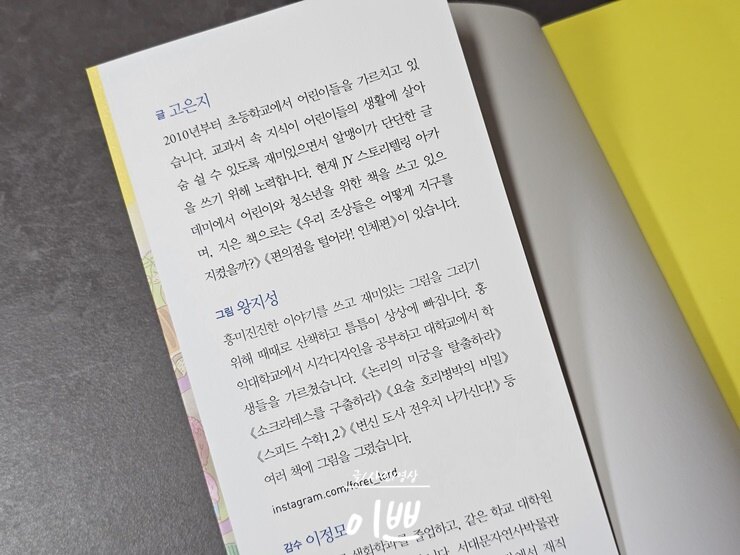 글 고은지
2010년부터 초등학교에서 어린이들을 가르치고 있
습니다. 교과서 속 지식이 어린이들의 생활에 살아
숨 쉴 수 있도록 재미있으면서 알맹이가 단단한 글
을 쓰기 위해 노력합니다. 현재 JY 스토리텔링 아카
데미에서 어린이와 청소년을 위한 책을 쓰고 있으
며, 지은 책으로는 《우리 조상들은 어떻게 지구를
지켰을까?》 《편의점을 털어라! 인체편》이 있습니다.
그림 왕지성
흥미진진한 이야기를 쓰고 재미있는 그림을 그리기
위해 때때로 산책하고 틈틈이 상상에 빠집니다. 홍
익대학교에서 시각디자인을 공부하고 대학교에서 학
생들을 가르쳤습니다. 《논리의 미궁을 탈출하라》
《소크라테스를 구출하라》 《요술 호리병박의 비밀》
《스피드 수학1,2》 《변신 도사 전우치 나가신다!》 등
여러 책에 그림을 그렸습니다.
instagram.com/
이쁘
감수 이정모
졸업하고, 같은 학교 대학원
서대문자연사박물관
에서 재직